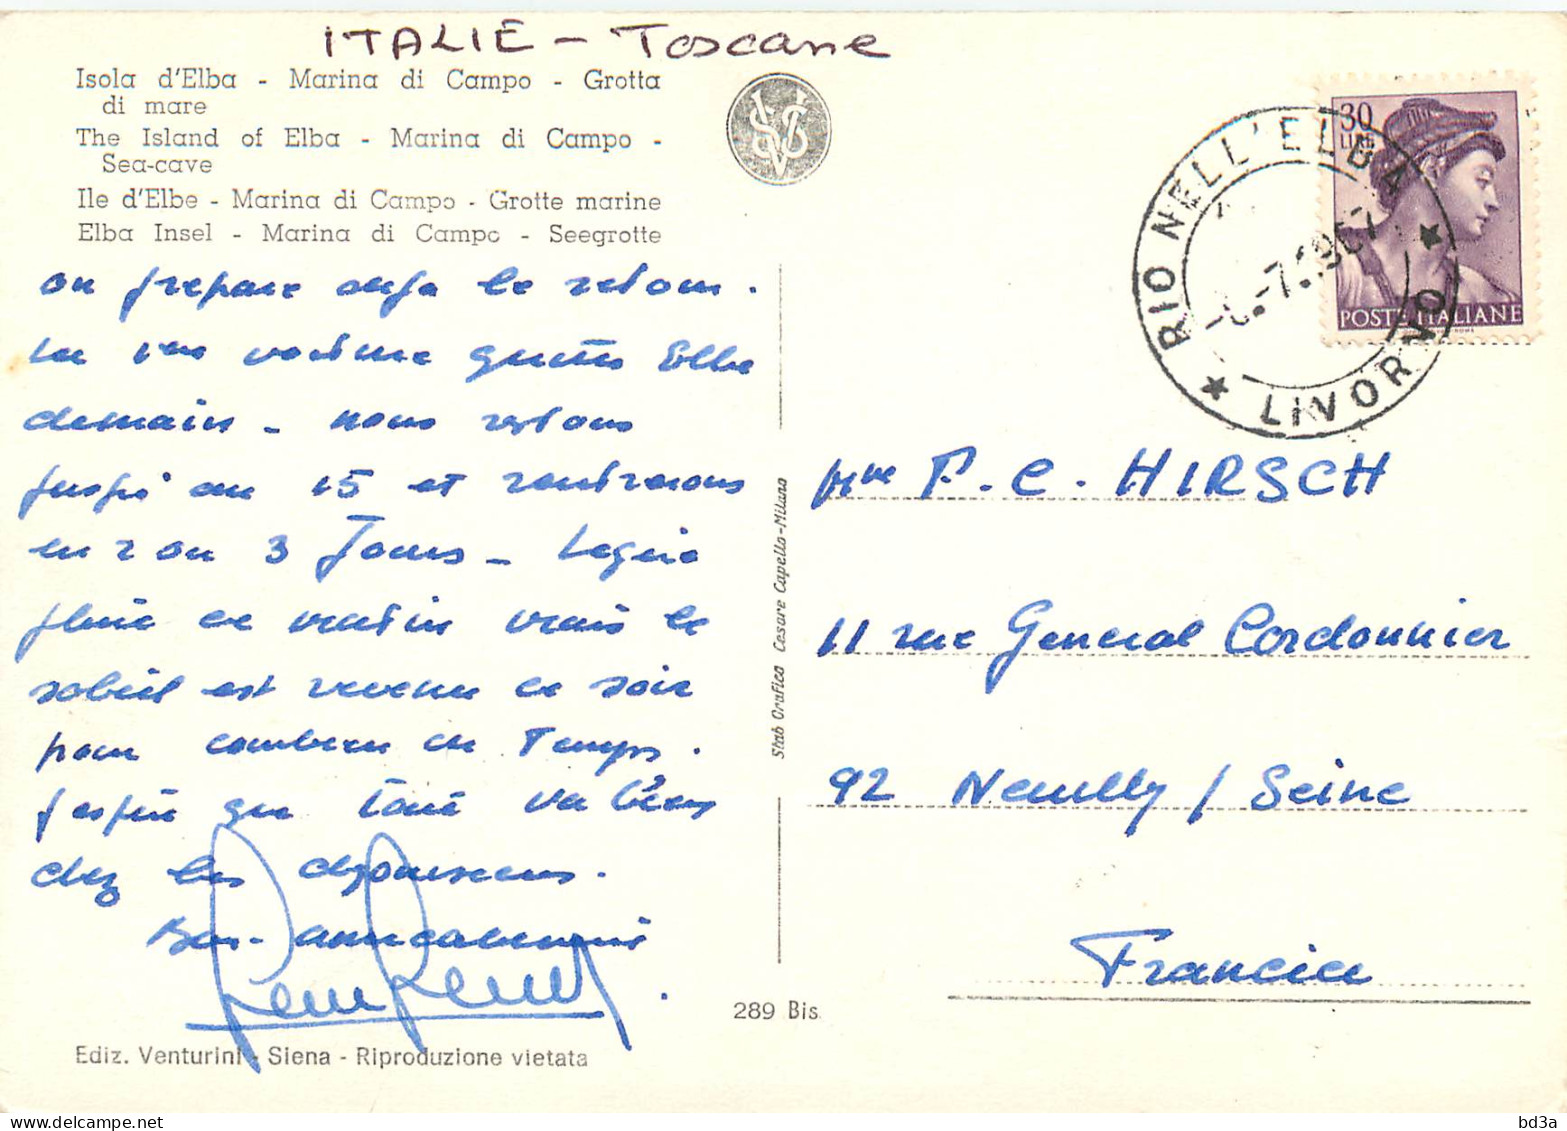 ITALIE - Toscane
Isola d'Elba - Marina di Campo - Grotta
di mare
The Island of Elba - Marina di Campo -
Sea-cave
Ile d'Elbe - Marina di Campo - Grotte marine
Elba Insel - Marina di Campo - Seegrotte
30
LIRE
POSTE ITALIANE
RIO NELL'ELBA
LIVORNO
on prepare deja le retour.
La voiture quitte Elbe
demain - nous restons
jusqu'au 15 et rentrerons
en 2 ou 3 Jours -
pluie ce matin mais le
soleil est revenu ce soir
pour
J'espère que tout va bien
chez les
Bien amicalement
F. C. HIRSCH
11 rue General Cordonnier
92 Neuilly / Seine
Francia
Stab Grafico Cesare Capello-Milano
289 Bis
Ediz. Venturini - Siena - Riproduzione vietata
bd3a